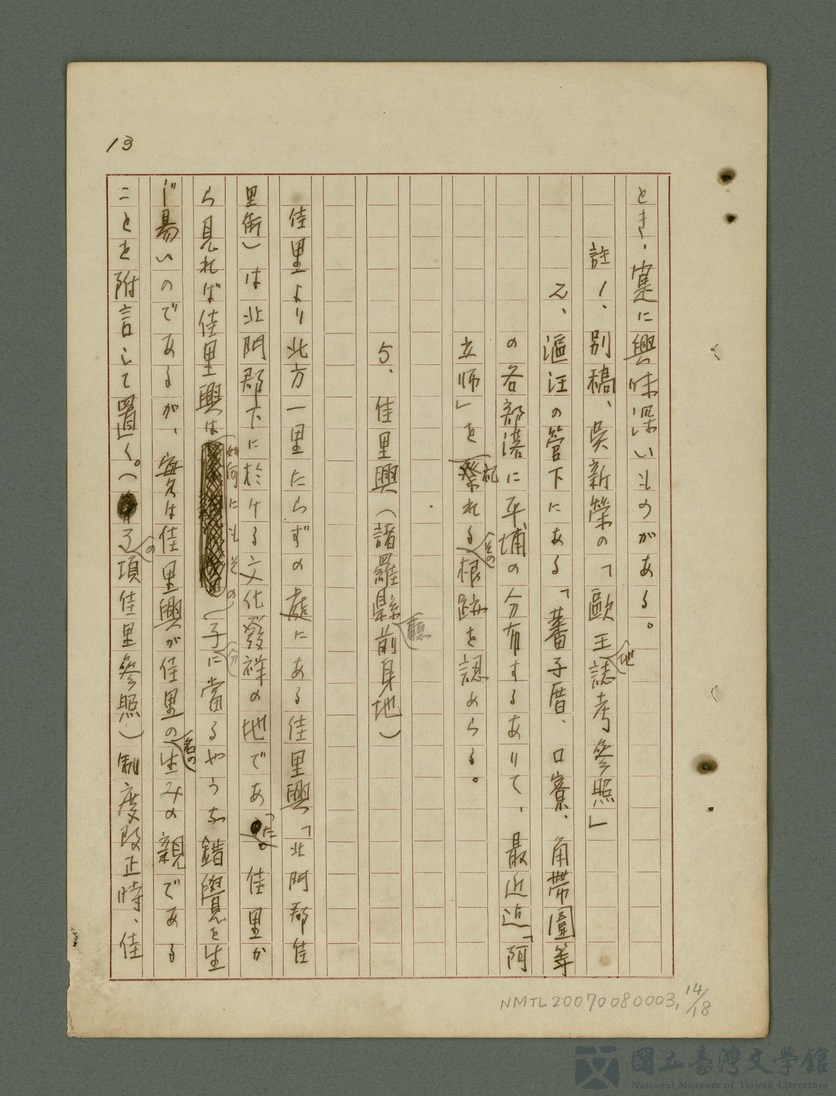 13
とき、寔に興味深いものがある。
註1、別稿、吳新榮の「歐王地誌考參照」
2、漚汪の管下にある「蕃子厝、口寮、角帶圍等
の各部落に平埔の分布するありて、最近迄「阿
立师」を祀れるその根跡を認めらる。
5、佳里興（諸羅縣廳前身地）
佳里より北方一里たらずの處にある佳里興「北門郡佳
里街）は北門郡下に於ける文化發祥の地であった。佳里か
ら見れば佳里興は如何にもその分子に當るやうな錯覺を生
じ易いのであるが、實は佳里興が佳里の名の生みの親である
ことを附言して置く。（の項佳里參照）制度改正時、佳
NMTL20070080003, 14/18
國立臺灣文學館
National Museum of Taiwan Literature